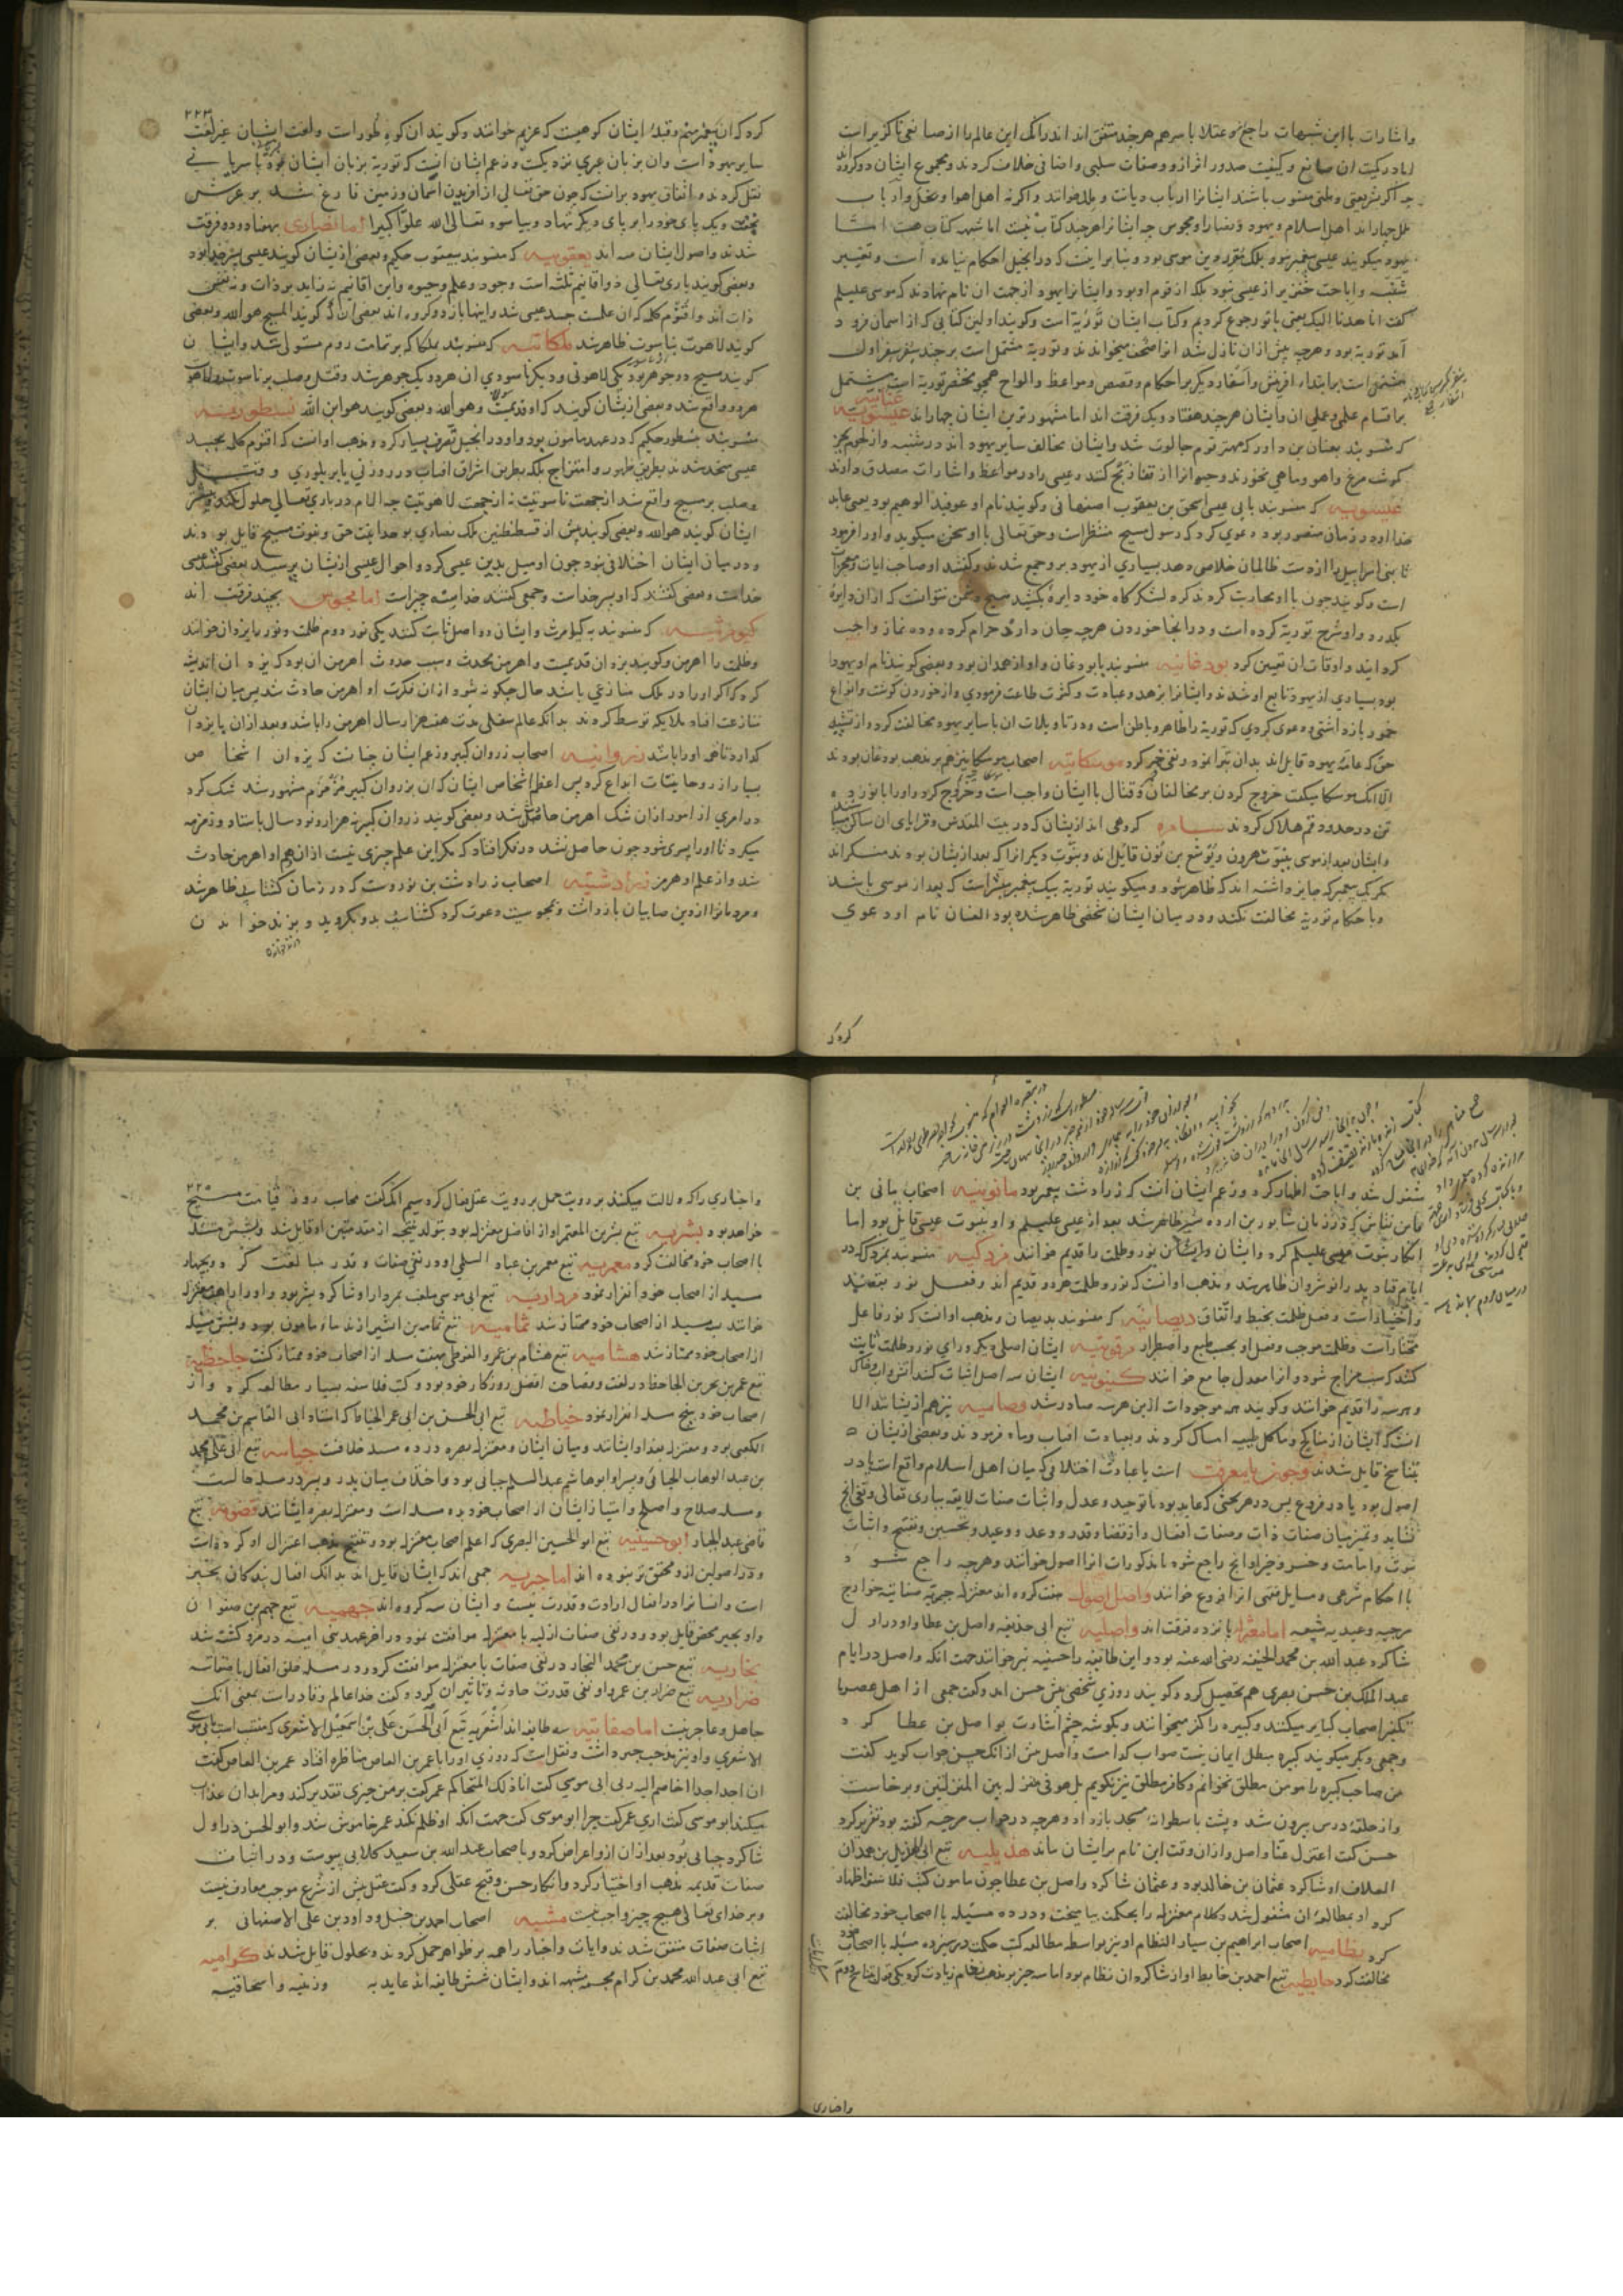 واشارات با این شبهات راجع و عقلا باسرهم هرچند متفق اند اندرانک این عالم را از صانعی ناگزیر است
اما در کیفیت ان صانع وکیفیت صدور اثر ازو وصفات سلبی واضافی خلاف کردند ومجموع ایشان دو گروه
چه اگر بشریعتی وملتی منسوب باشند ایشانرا ارباب دیانت وملل خوانند واگرنه اهل اهوا ونحل وارباب
ملل چهار اند اهل اسلام ویهود ونصارا ومجوس چه ایشانرا هرچند کتاب نیست اما شبهه کتاب هست اما
یهود میگویند عیسی پیغمبر نبود بلک مقرر دین موسی بود وبنا بر اینست که در انجیل احکام نیامده است وتغییر
شنبه واباحت خنزیر از عیسی نبود بلکه از قوم او بود وایشانرا یهود از جهت ان نام نهادند که موسی علیه السلم
گفت انا هدنا الیک یعنی باتو رجوع کردیم وکتاب ایشان توریة است وگویند اولین کتابی که از اسمان فرود
آمد توریة بود وهرچه پیش ازان نازل شد انرا صحف میخوانند وتوریة مشتمل است بر چند سفر سفر اول
مشتمل است بر ابتداء افرینش واسفار دیگر بر احکام وقصص ومواعظ والواح همچو مختصر توریة است مشتمل
بر اقسام علمی وعملی ان وایشان هرچند هفتاد ویک فرقت اند اما مشهورترین ایشان چهار اند عنانیه
که منسوبند بعنان بن داود که مهتر قوم جالوت شد وایشان مخالف سایر یهود اند در شنبه واز لحوم بجز
گوشت مرغ واهو وماهی نخورند وحیوانرا از قفا ذبح کنند وعیسی را در مواعظ واشارات مصدق دارند
عیسویه که منسوبند بابی عیسی اسحق بن یعقوب اصفهانی وگویند نام او عوفید الوهیم بود یعنی عابد
خدا او در زمان منصور بود دعوی کرد که رسول مسیح منتظر است وحق تعالی با او سخن میگوید واورا فرمود
تا بنی اسرائیل را از دست ظالمان خلاصی دهد بسیاری از یهود بر وجمع شدند وگفتند او صاحب ایات ومعجزات
است وگویند چون با او محاربت کردند گرد لشکرگاه خود دایره بکشید دشمن نتوانست که ازان دایره
بگذرد واو شرح توریة کرده است ودر انجا خوردن هرچه جان دارد حرام کرده وده نماز واجب
گردانید واوقات ان تعیین کرد یودغانیه منسوبند بابودغان واو از همدان بود وبعضی گویند نام او یهودا
بود بسیاری از یهود تابع او شدند وایشانرا بزهد وعبادت وکثرت طاعت فرمودی واز خوردن گوشت وانواع
خمور بازداشتی ودعوی کردی که توریة را ظاهر وباطن است ودر تاویلات ان با سایر یهود مخالفت کرد واز تشبیه
حق که عامه یهود قایل اند بدان تبرا نمود ونفی جبر کرد موشکانیه اصحاب موشکا نیز هم بر مذهب یودغان بودند
الا انک موشکا میگفت خروج کردن بر مخالفان وقتال با ایشان واجب است وخروج کرد واورا با نوزده
تن در حدود قم هلاک کردند سامره گروهی اند از یشان که در بیت المقدس وقرایای ان ساکن
وایشان بعد از موسی بنبوت هرون ویوشع بن نون قایل اند وبنبوت دیگر انرا که بعد ازیشان بودند منکراند
مگر یک پیغمبر که جایز داشته اند که ظاهر شود ومیگویند توریة بیک پیغمبر مبشر است که بعد از موسی باشد
وبا حکام توریة مخالفت نکند ودر میان ایشان شخصی ظاهر شده بود الفان نام او دعوی
کرد که
۲۲۳
کرد که ان پیغمبر منم وقبله ایشان کوهیست که عزیم خوانند وگویند ان کوه طور است ولغت ایشان غیر لغت
سایر یهود است وان بزبان عبری نزدیکست وزعم ایشان انست که توریة بزبان ایشان بود با سریانی
نقل کردند واتفاق یهود بر انست که چون حق تعالی از افریدن اسمان وزمین فارغ شد بر عرش
بخفت ویک پای خود را بر پای دیگر نهاد وبیاسود تعالی الله علوا کبیرا اما نصاری بهفتاد ودو فرقت
شدند واصول ایشان سه اند یعقوبیه که منسوبند بیعقوب حکیم وبعضی ازیشان گویند عیسی پسر خدا بود
وبعضی گویند باری تعالی ذو اقانیم ثلثه است وجود وعلم وحیوة واین اقانیم نه زاید بر ذات ونه نفس
ذات اند واقنوم کلمه که ان علمست جسد عیسی شد واینها باز دو گروه اند بعضی انند که گویند المسیح هو الله وبعضی
گویند لاهوت بناسوت ظاهر شد ملکائیه که منسوبند بملکا که بر تمامت روم مستولی شد وایشان
گویند مسیح دو جوهر بود یکی لاهوتی ودیگر ناسوتی ان هر دو یک جوهر شد وقتل وصلب بر ناسوت ولاهوت
هر دو واقع شد وبعضی ازیشان گویند که او قدیمست وهو الله وبعضی گویند هو ابن الله نسطوریه
منسوبند بنسطور حکیم که در عهد مامون بود واو در انجیل تصرف بسیار کرد ومذهب او انست که اقنوم کلمه بجسد
عیسی متحد شد نه بطریق ظهور وامتزاج بلکه بطریق اشراق افتاب در روزنی یا بر بلوری وقتل
وصلب بر مسیح واقع شد از جهت ناسوتیت نه از جهت لاهوتیت چه الام در باری تعالی حلول نکند وبیشتر
ایشان گویند هو الله وبعضی گویند پیش از قسطنطین ملک نصاری بوحدانیت حق ونبوت مسیح قایل بودند
ودر میان ایشان اختلافی نبود چون او میل بدین عیسی کرد واحوال عیسی ازیشان پرسید بعضی گفتند عیسی
خداست وبعضی گفتند که او پسر خداست وجمعی گفتند خدا سه چیز است اما مجوس بچند فرقت اند
کیومرثیه که منسوبند به کیامرث وایشان دو اصل ثابت کنند یکی نور دوم ظلمت ونور را یزدان خوانند
وظلمت را اهرمن وگویند یزدان قدیمست واهرمن محدث وسبب حدوث اهرمن ان بود که یزدان اندیشه
کرد که اگر اورا در ملک منازعی باشد حال چگونه شود ازان فکرت او اهرمن حادث شد پس میان ایشان
منازعت افتاد ملایکه توسط کردند بدانکه عالم سفلی مدت هفت هزار سال اهرمن را باشد وبعد ازان یا یزدان
گذارد تا هم اورا باشد زروانیه اصحاب زروان کبیر وزعم ایشان چنانست که یزدان اشخاص
بسیار از روحانیات ابداع کرد پس اعظم اشخاص ایشان که ان بزروان کبیر مزمزم مشهور شد شک کرد
در امری از امور ازان شک اهرمن حاصل شد وبعضی گویند زروان کبیر نه هزار ونود سال باستاد وزمزمه
میکرد تا اورا پسری شود چون حاصل نشد در فکر افتاد که مگر این علم چیزی نیست ازان هم او اهرمن حادث
شد واز علم او هرمز زرادشتیه اصحاب زرادشت بن بوروست که در زمان گشتاسپ ظاهر شد
ومردمانرا از دین صابیان بازداشت وبمجوسیت دعوت کرد گشتاسپ بدو بگروید وبزند خواندن
مشغول شد واباحت اظهار کرد وزعم ایشان انست که زرادشت پیغمبر بود مانویه اصحاب مانی بن
فاتن نقاش که در زمان شاپور بن اردشیر ظاهر شد بعد از عیسی علیه السلم واو بنبوت عیسی قایل بود اما
انکار نبوت موسی علیه السلم کرد وایشان نور وظلمت را قدیم خوانند مزدکیه منسوبند بمزدک که در
ایام قباد پدر انوشروان ظاهر شد ومذهب او انست که نور وظلمت هر دو قدیم اند وفعل نور بقصد
واختیار است وفعل ظلمت بخبط واتفاق دیصانیه که منسوبند بدیصان ومذهب او انست که نور فاعل
مختار است وظلمت موجب وفعل او بحسب طبع واضطرار مرقونیه ایشان اصلی دیگر ورای نور وظلمت ثابت
کنند که سبب مزاج شود وانرا معدل جامع خوانند کینویه ایشان سه اصل اثبات کنند اتش واب وخاک
وهر سه را قدیم خوانند وگویند همه موجودات ازین هر سه صادر شد وصامیه نیز هم ازیشانند الا
انست که ایشان از مناکح وماکل طیبه امساک کردند وبعبادت افتاب وماه فرمودند وبعضی ازیشان
بتناسخ قایل شدند وچون باید دانست اختلافی که میان اهل اسلام واقع است یا در
اصول بود یا در فروع پس در هر بحثی که عاید بود با توحید وعدل واثبات صفات لایقه بباری تعالی ونفی انچ
نشاید وتمییز میان صفات ذات وصفات افعال واز قضا وقدر ووعد ووعید وتحسین وتقبیح واثبات
نبوت وامامت وحشر وجز او انچ راجع شود باین مذکورات انرا اصول خوانند وهرچه راجع شود
با احکام شرعی ومسایل فقهی انرا فروع خوانند واهل اصول هفت گروه اند معتزله جبریه صفاتیه خوارج
مرجیه وعیدیه شیعه اما معتزله پانزده فرقت اند واصلیه تبع ابی حذیفه واصل بن عطا واو در اول
شاگرد عبد الله بن محمد الحنفیه رضی الله عنه بود واین طایفه را حسنیه نیز خوانند جهت انکه واصل در ایام
عبد الملک بن حسن بصری هم تحصیل کرد وگویند روزی شخصی پیش حسن امد وگفت جمعی از اهل عصر ما
تکفیر اصحاب کبایر میکنند وکبیره را کفر میخوانند وبگوشه چشم اشارت بواصل بن عطا کرد
وجمعی دیگر میگویند کبیره مبطل ایمان نیست صواب کدامست واصل پیش از انک حسن جواب گوید گفت
من صاحب کبیره را مومن مطلق نخوانم وکافر مطلق نیز نگویم بل هو فی منزلة بین المنزلتین وبرخاست
واز حلقه درس بیرون شد وپشت باسطوانه مسجد باز داد وهرچه در جواب مرجیه گفته بود تقریر کرد
حسن گفت اعتزل عنا واصل وازان وقت این نام بر ایشان ماند هذیلیه تبع ابی الهذیل بن حمدان
العلاف او شاگرد عثمان بن خالد بود وعثمان شاگرد واصل بن عطا چون مامون کتب فلاسفه اظهار
کرد او بمطالعه ان مشغول شد وکلام معتزله را بحکمت بیامیخت ودر ده مسئله با اصحاب خود مخالفت
کرد نظامیه اصحاب ابراهیم بن سیار النظام او نیز بواسطه مطالعه کتب حکمت در سیزده مسئله با اصحاب خود
مخالفت کرد حابطیه تبع احمد بن حابط او از شاگردان نظام بود اما سه چیز بر مذهب نظام زیادت کرد یکی قول بتناسخ دوم
واخباری
۲۲۵
واخباری را که دلالت میکند بر رویت حمل بر رویت عقل فعال کرد سیم انکه گفت محاسب روز قیامت مسیح
خواهد بود بشریه تبع بشر بن المعتمر او از افاضل معتزله بود بتولد نتیجه از مقدمتین او قایل شد وبشش مسئله
با اصحاب خود مخالفت کرد معمریه تبع معمر بن عباد السلمی او در نفی صفات وقدر مبالغت کرد وبچهار
مسئله از اصحاب خود انفراد نمود مرداریه تبع ابی موسی ملقب بمردار او شاگرد بشر بود واورا راهب معتزله
خوانند بسه مسئله از اصحاب خود ممتاز شد ثمامیه تبع ثمامه بن اشرس از ندماء مامون بود وبشش مسئله
از اصحاب خود ممتاز شد هشامیه تبع هشام بن عمرو الفوطی بهفت مسئله از اصحاب خود ممتاز گشت جاحظیه
تبع عمر بن بحر بن الجاحظ در لغت وفصاحت افضل روزگار خود بود وکتب فلاسفه بسیار مطالعه کرد واز
اصحاب خود بپنج مسئله انفراد نمود خیاطیه تبع ابی الحسن بن ابی عمر الخیاط که استاد ابی القاسم بن محمد
الکعبی بود ومعتزله بغداد ایشانند ومیان ایشان ومعتزله بصره در ده مسئله خلافست جبائیه تبع ابی علی محمد
بن عبد الوهاب الجبائی وپسر او ابو هاشم عبد السلم جبائی بود واختلاف میان پدر وپسر در مسئله حالست
ومسئله صلاح واصلح وامتیاز ایشان از اصحاب خود بده مسئله است ومعتزله بصره ایشانند قضویه تبع
قاضی عبد الجبار ابو حسینیه تبع ابو الحسین البصری که اعلم اصحاب معتزله بود وتنقیح مذهب اعتزال او کرده است
ودر اصولین ازو محقق تر نبوده اند اما جبریه جمعی اند که ایشان قایل اند بدانک افعال بندگان بخیر
است وانسانرا در افعال ارادت وقدرت نیست وایشان سه گروه اند جهمیه تبع جهم بن صفوان
واو بجبر محض قایل بود ودر نفی صفات ازلیه با معتزله موافقت نمود ودر اخر عهد بنی امیه در مرو کشته شد
نجاریه تبع حسن بن محمد النجار در نفی صفات با معتزله موافقت کرد ودر مسئله خلق افعال با صفاتیه
ضراریه تبع ضرار بن عمرو او نفی قدرت حادثه وتاثیر ان کرد وگفت خدا عالم وقادر است بمعنی انک
جاهل وعاجز نیست اما صفاتیه سه طایفه اند اشعریه تبع ابی الحسن علی بن اسمعیل الاشعری که منتسب است بابی موسی
الاشعری واو نیز مذهب جبر داشت ونقل است که روزی اورا با عمر بن العاص مناظره افتاد عمر بن العاص گفت
ان اجد احدا اخاصم الیه ربی ابی موسی گفت انا ذلک المتحاکم عمر گفت بر من چیزی تقدیر کند ومرا بدان عذاب
میکند ابو موسی گفت اری عمر گفت چرا ابو موسی گفت جهت انکه او ظلم نکند عمر خاموش شد وابو الحسن در اول
شاگرد جبائی بود بعد ازان ازو اعراض کرد وباصحاب عبد الله بن سعید کلابی پیوست ودر اثبات
صفات قدیمه مذهب او اختیار کرد وانکار حسن وقبح عقلی کرد وگفت عقل پیش از شرع موجب معارف نیست
وبر خدای تعالی هیچ چیز واجب نیست مشبهه اصحاب احمد بن حنبل وداود بن علی الاصفهانی بر
اثبات صفات متفق شدند وایات واخبار را همه بر ظواهر حمل کردند وبحلول قایل شدند کرامیه
تبع ابی عبد الله محمد بن کرام مجسمه مشبهه اند وایشان شش طایفه اند عابدیه وزینیه واسحاقیه